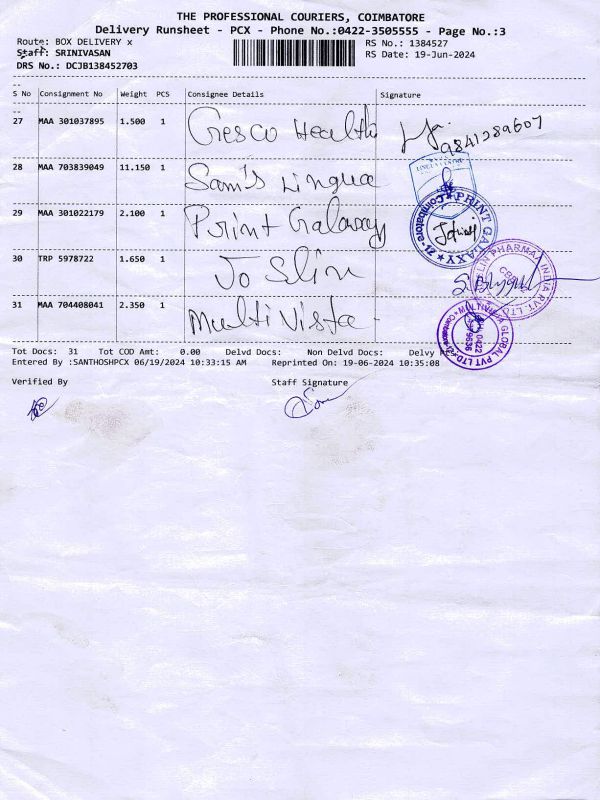 THE PROFESSIONAL COURIERS, COIMBATORE
Delivery Runsheet - PCX - Phone No.:0422-3505555 - Page No.:3
Route: BOX DELIVERY x RS No.: 1384527
Staff: SRINIVASAN RS Date: 19-Jun-2024
DRS No.: DCJB138452703
S No Consignment No Weight PCS Consignee Details Signature
27 MAA 301037895 1.500 1 Cresco Health 9841289607
28 MAA 703839049 11.150 1 Sam's Lingua
29 MAA 301022179 2.100 1 Print Galaxy
PRINT GALAXY
Coimbatore
30 TRP 5978722 1.650 1 Jo Slin
LIN PHARMA INDIA PVT. LTD
CBE
31 MAA 704408041 2.350 1 Multi Vista
GLOBAL PVT LTD
0422
Tot Docs: 31 Tot COD Amt: 0.00 Delvd Docs: Non Delvd Docs: Delvy
Entered By :SANTHOSHPCX 06/19/2024 10:33:15 AM Reprinted On: 19-06-2024 10:35:08
Verified By Staff Signature